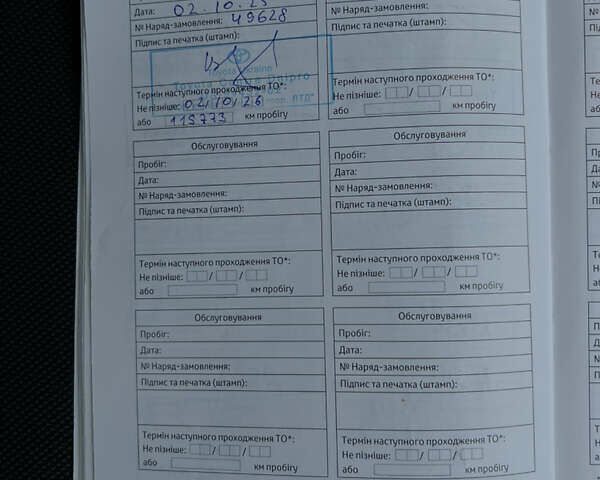 Дата: 02.10.25
№ Наряд-замовлення: 49628
Підпис та печатка (штамп):
Термін наступного проходження ТО*:
Не пізніше: 02/10/26
або 115773 км пробігу
Термін наступного проходження ТО*:
Не пізніше: / /
або км пробігу
Обслуговування
Пробіг:
Дата:
№ Наряд-замовлення:
Підпис та печатка (штамп):
Термін наступного проходження ТО*:
Не пізніше: / /
або км пробігу
Обслуговування
Пробіг:
Дата:
№ Наряд-замовлення:
Підпис та печатка (штамп):
Термін наступного проходження ТО*:
Не пізніше: / /
або км пробігу
Обслуговування
Пробіг:
Дата:
№ Наряд-замовлення:
Підпис та печатка (штамп):
Термін наступного проходження ТО*:
Не пізніше: / /
або км пробігу
Обслуговування
Пробіг:
Дата:
№ Наряд-замовлення:
Підпис та печатка (штамп):
Термін наступного проходження ТО*:
Не пізніше: / /
або км пробігу